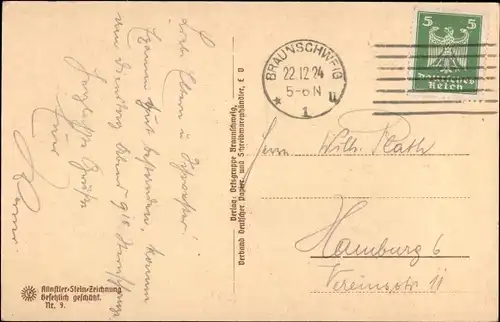 Liebe Eltern u. Schwester!
gut
Dienstag Abend 9 16
Herzlichste Grüße
BRAUNSCHWEIG
22.12.24
5-6 N
* 1 u
5 5
Deutsches
Reich
Verlag: Ortsgruppe Braunschweig,
Verband Deutscher Papier- und Schreibwarenhändler, E. V.
Herrn Wilh. Plath
Hamburg 6
Vereinsstr. 11
Künstler-Stein-Zeichnung
Gesetzlich geschützt.
Nr. 9.